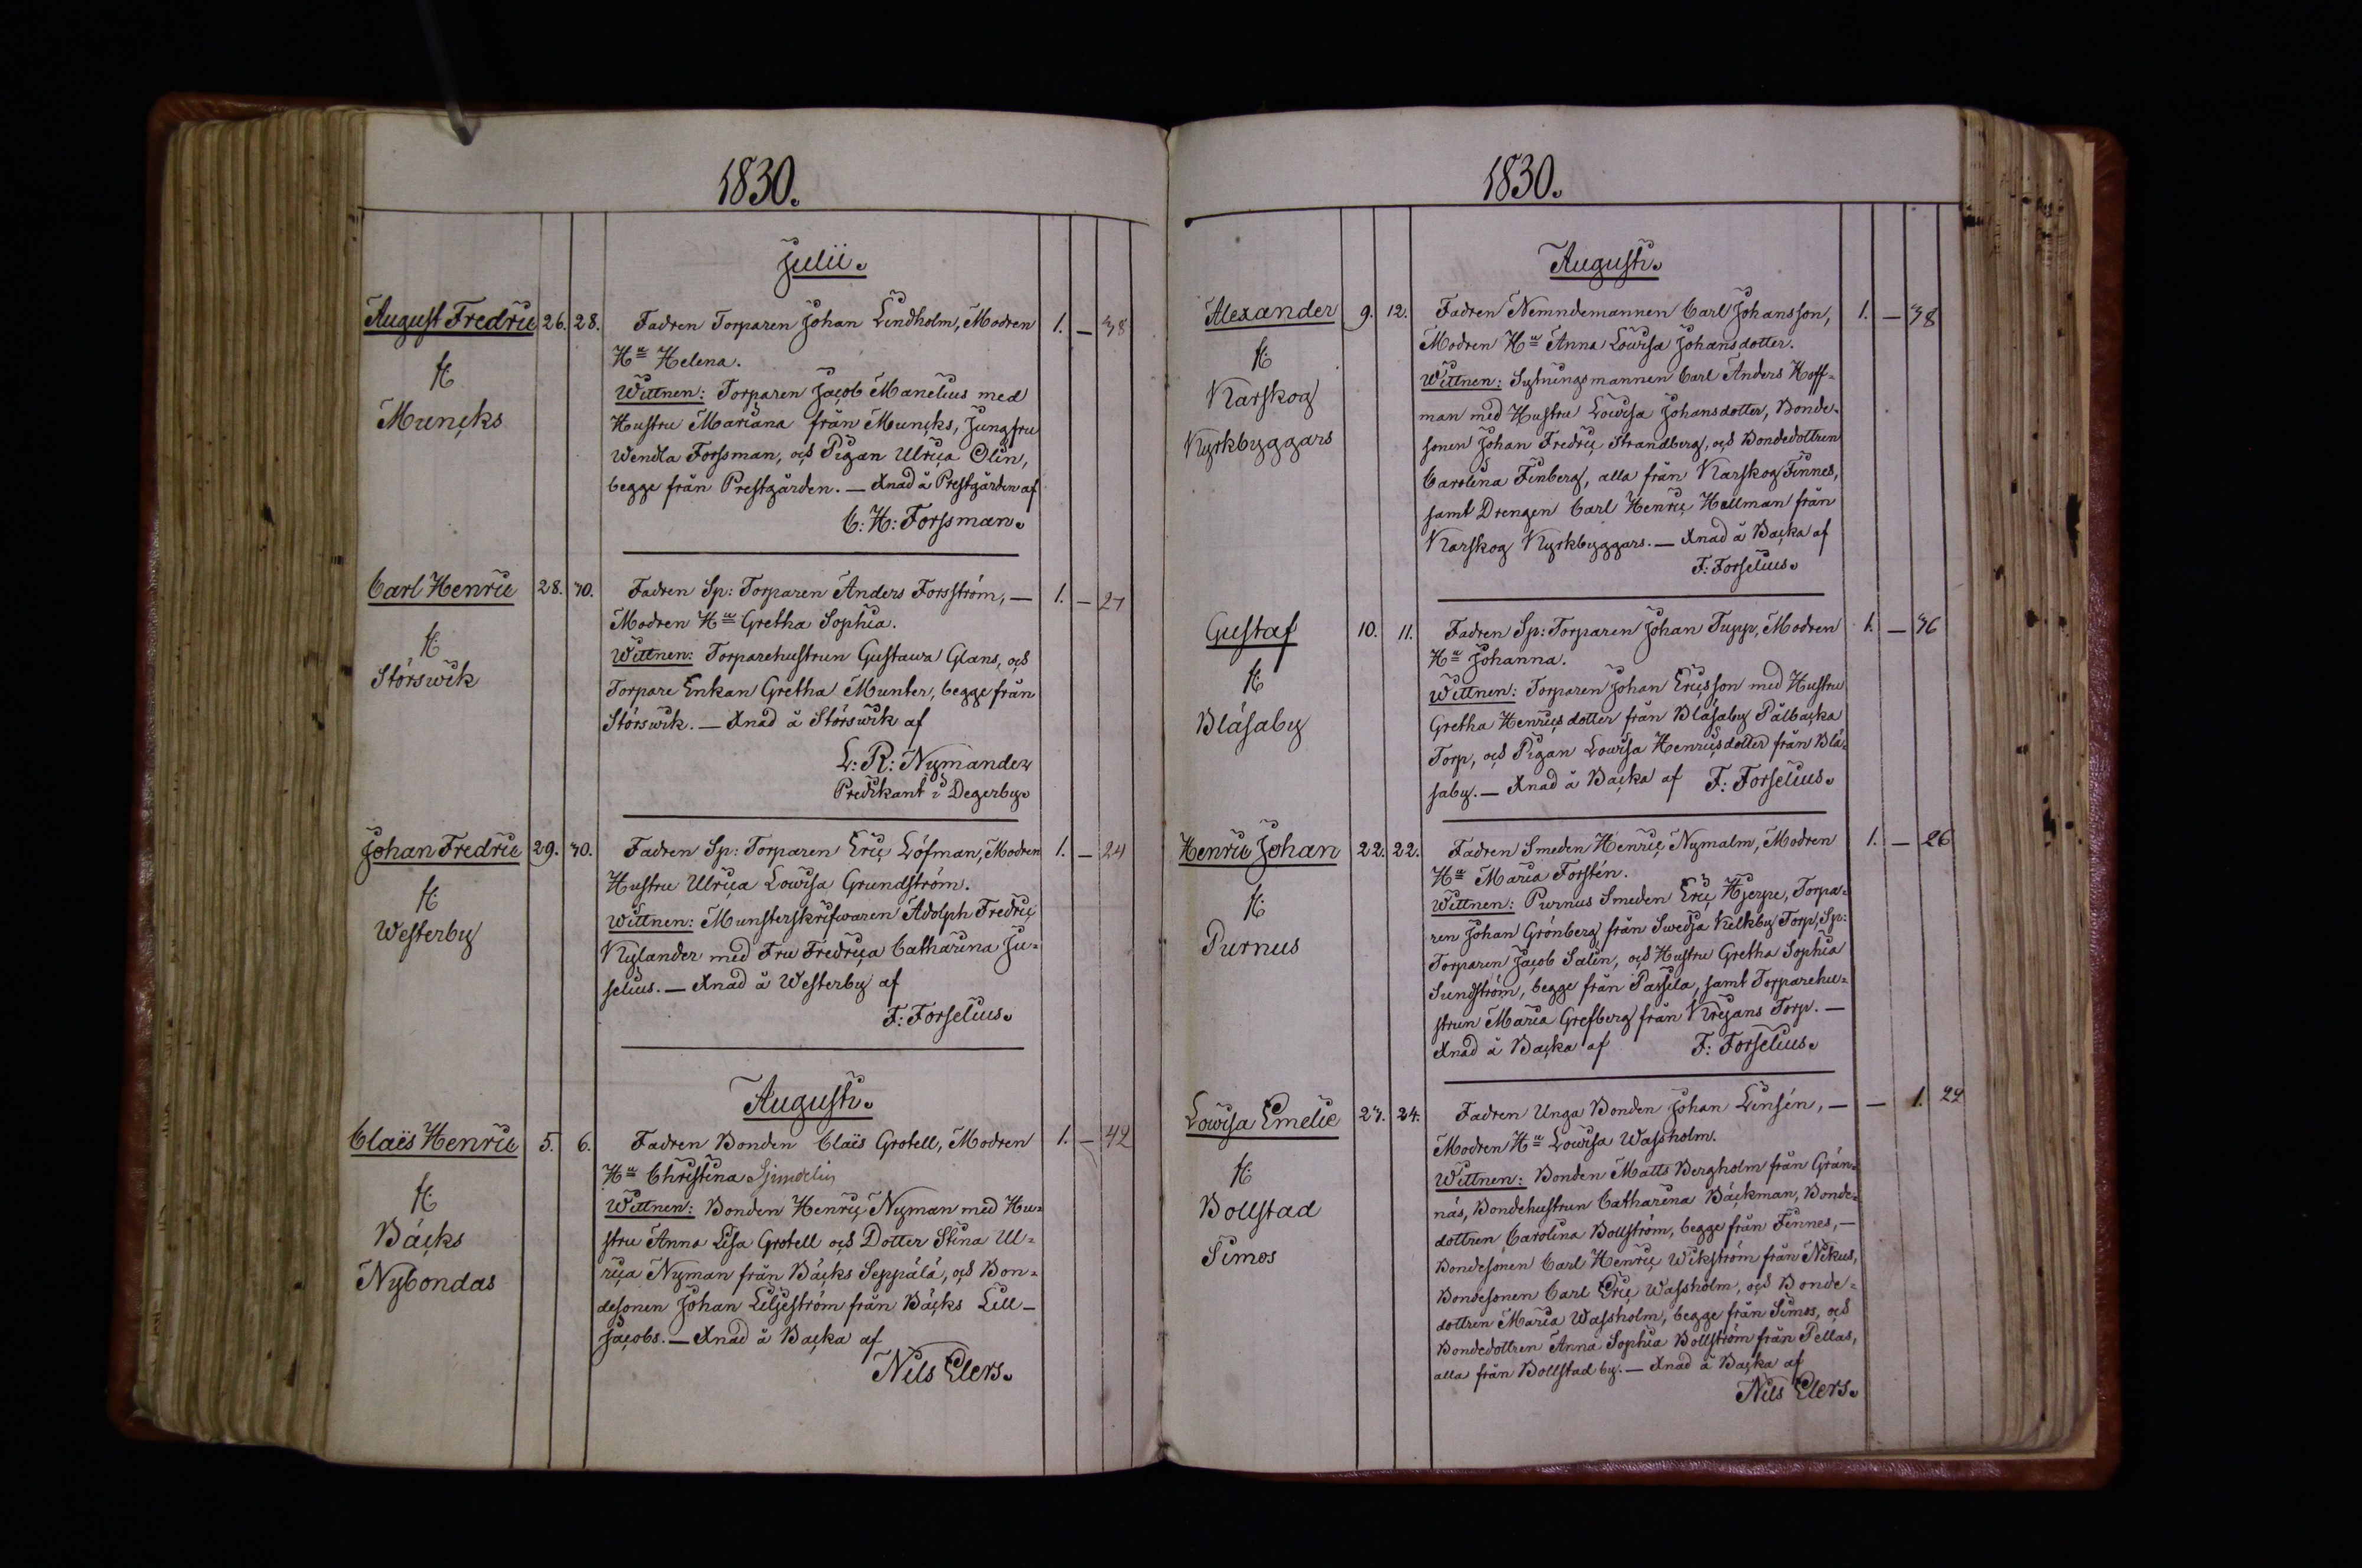 1830.
Julii.
August Fredric 26. 28. Fadren Torparen Johan Lindholm, Modren 1. — 38
Hu Helena.
Muncks
Wittnen: Torparen Jacob Manelius med
Hustru Mariana från Muncks, Jungfru
Wendla Forssman, och Pigan Ulrica Olin,
begge från Prestgården. — Xnad å Prestgården af
C: H: Forssman.
Carl Henric 28. 30. Fadren Sp: Torparen Anders Forsström, — 1. — 27
Modren Hu Gretha Sophia.
Störswik
Wittnen: Torparehustrun Gustawa Glans, och
Torpare Enkan Gretha Munter, begge från
Störswik. — Xnad å Störswik af
L: R: Nymander
Predikant i Degerby.
Johan Fredric 29. 30. Fadren Sp: Torparen Eric Löfman, Modren 1. — 24
Hustru Ulrica Lowisa Grundström.
Westerby
Wittnen: Munsterskrifwaren Adolph Fredric
Kylander med Fru Fredrica Catharina Ju=
selius. — Xnad å Westerby af
F: Forselius.
Augusti.
Claës Henric 5. 6. Fadren Bonden Claës Grotell, Modren 1. — 42
Hu Christina
Bäcks
Nybondas
Wittnen: Bonden Henric Nyman med Hu=
stru Anna Lisa Grotell och Dotter Stina Ul=
rica Nyman från Bäcks Seppälä, och Bon=
desonen Johan Liljeström från Bäcks Lill—
Jacobs. — Xnad å Backa af
Nils Elers.
1830.
Augusti.
Alexander 9. 12. Fadren Nemndemannen Carl Johansson, 1. — 38
Modren Hu Anna Lowisa Johansdotter.
Karskog
Kyrkbyggars
Wittnen: Sytningsmannen Carl Anders Hoff=
man med Hustru Lowisa Johansdotter, Bonde=
sonen Johan Fredric Strandberg, och Bondedottren
Carolina Finberg, alla från Karskog Finnes,
samt Drengen Carl Henric Hellman från
Karskog Kyrkbyggars. — Xnad å Backa af
F: Forselius.
Gustaf 10. 11. Fadren Sp: Torparen Johan Tupp, Modren 1. — 36
Hu Johanna.
Blåsaby
Wittnen: Torparen Johan Ericsson med Hustru
Gretha Henricsdotter från Blåsaby Pålbacka
Torp, och Pigan Lowisa Henricsdotter från Blå=
saby. — Xnad å Backa af F: Forselius.
Henric Johan 22. 22. Fadren Smeden Henric Nymalm, Modren 1. — 26
Hu Maria Forstén.
Purnus
Wittnen: Purnus Smeden Eric Hjerpe, Torpa=
ren Johan Grönberg från Swedja Kelkby Torp, Sp:
Torparen Jacob Salin, och Hustru Gretha Sophia
Sundström, begge från Passila, samt Torparehu=
strun Maria Grefberg från Krejans Torp. —
Xnad å Backa af F: Forselius.
Lowisa Emelie 23. 24. Fadren Unga Bonden Johan Linsén, — — 1. 22
Modren Hu Lowisa Wassholm.
Bollstad
Simos
Wittnen: Bonden Matts Bergholm från Grän=
näs, Bondehustrun Catharina Bäckman, Bonde=
dottren Carolina Bollström, begge från Finnes, —
Bondesonen Carl Henric Wikström från Nikus,
Bondesonen Carl Eric Wassholm, och Bonde=
dottren Maria Wassholm, begge från Simos, och
Bondedottren Anna Sophia Bollström från Pellas,
alla från Bollstad by. — Xnad å Backa af
Nils Elers.